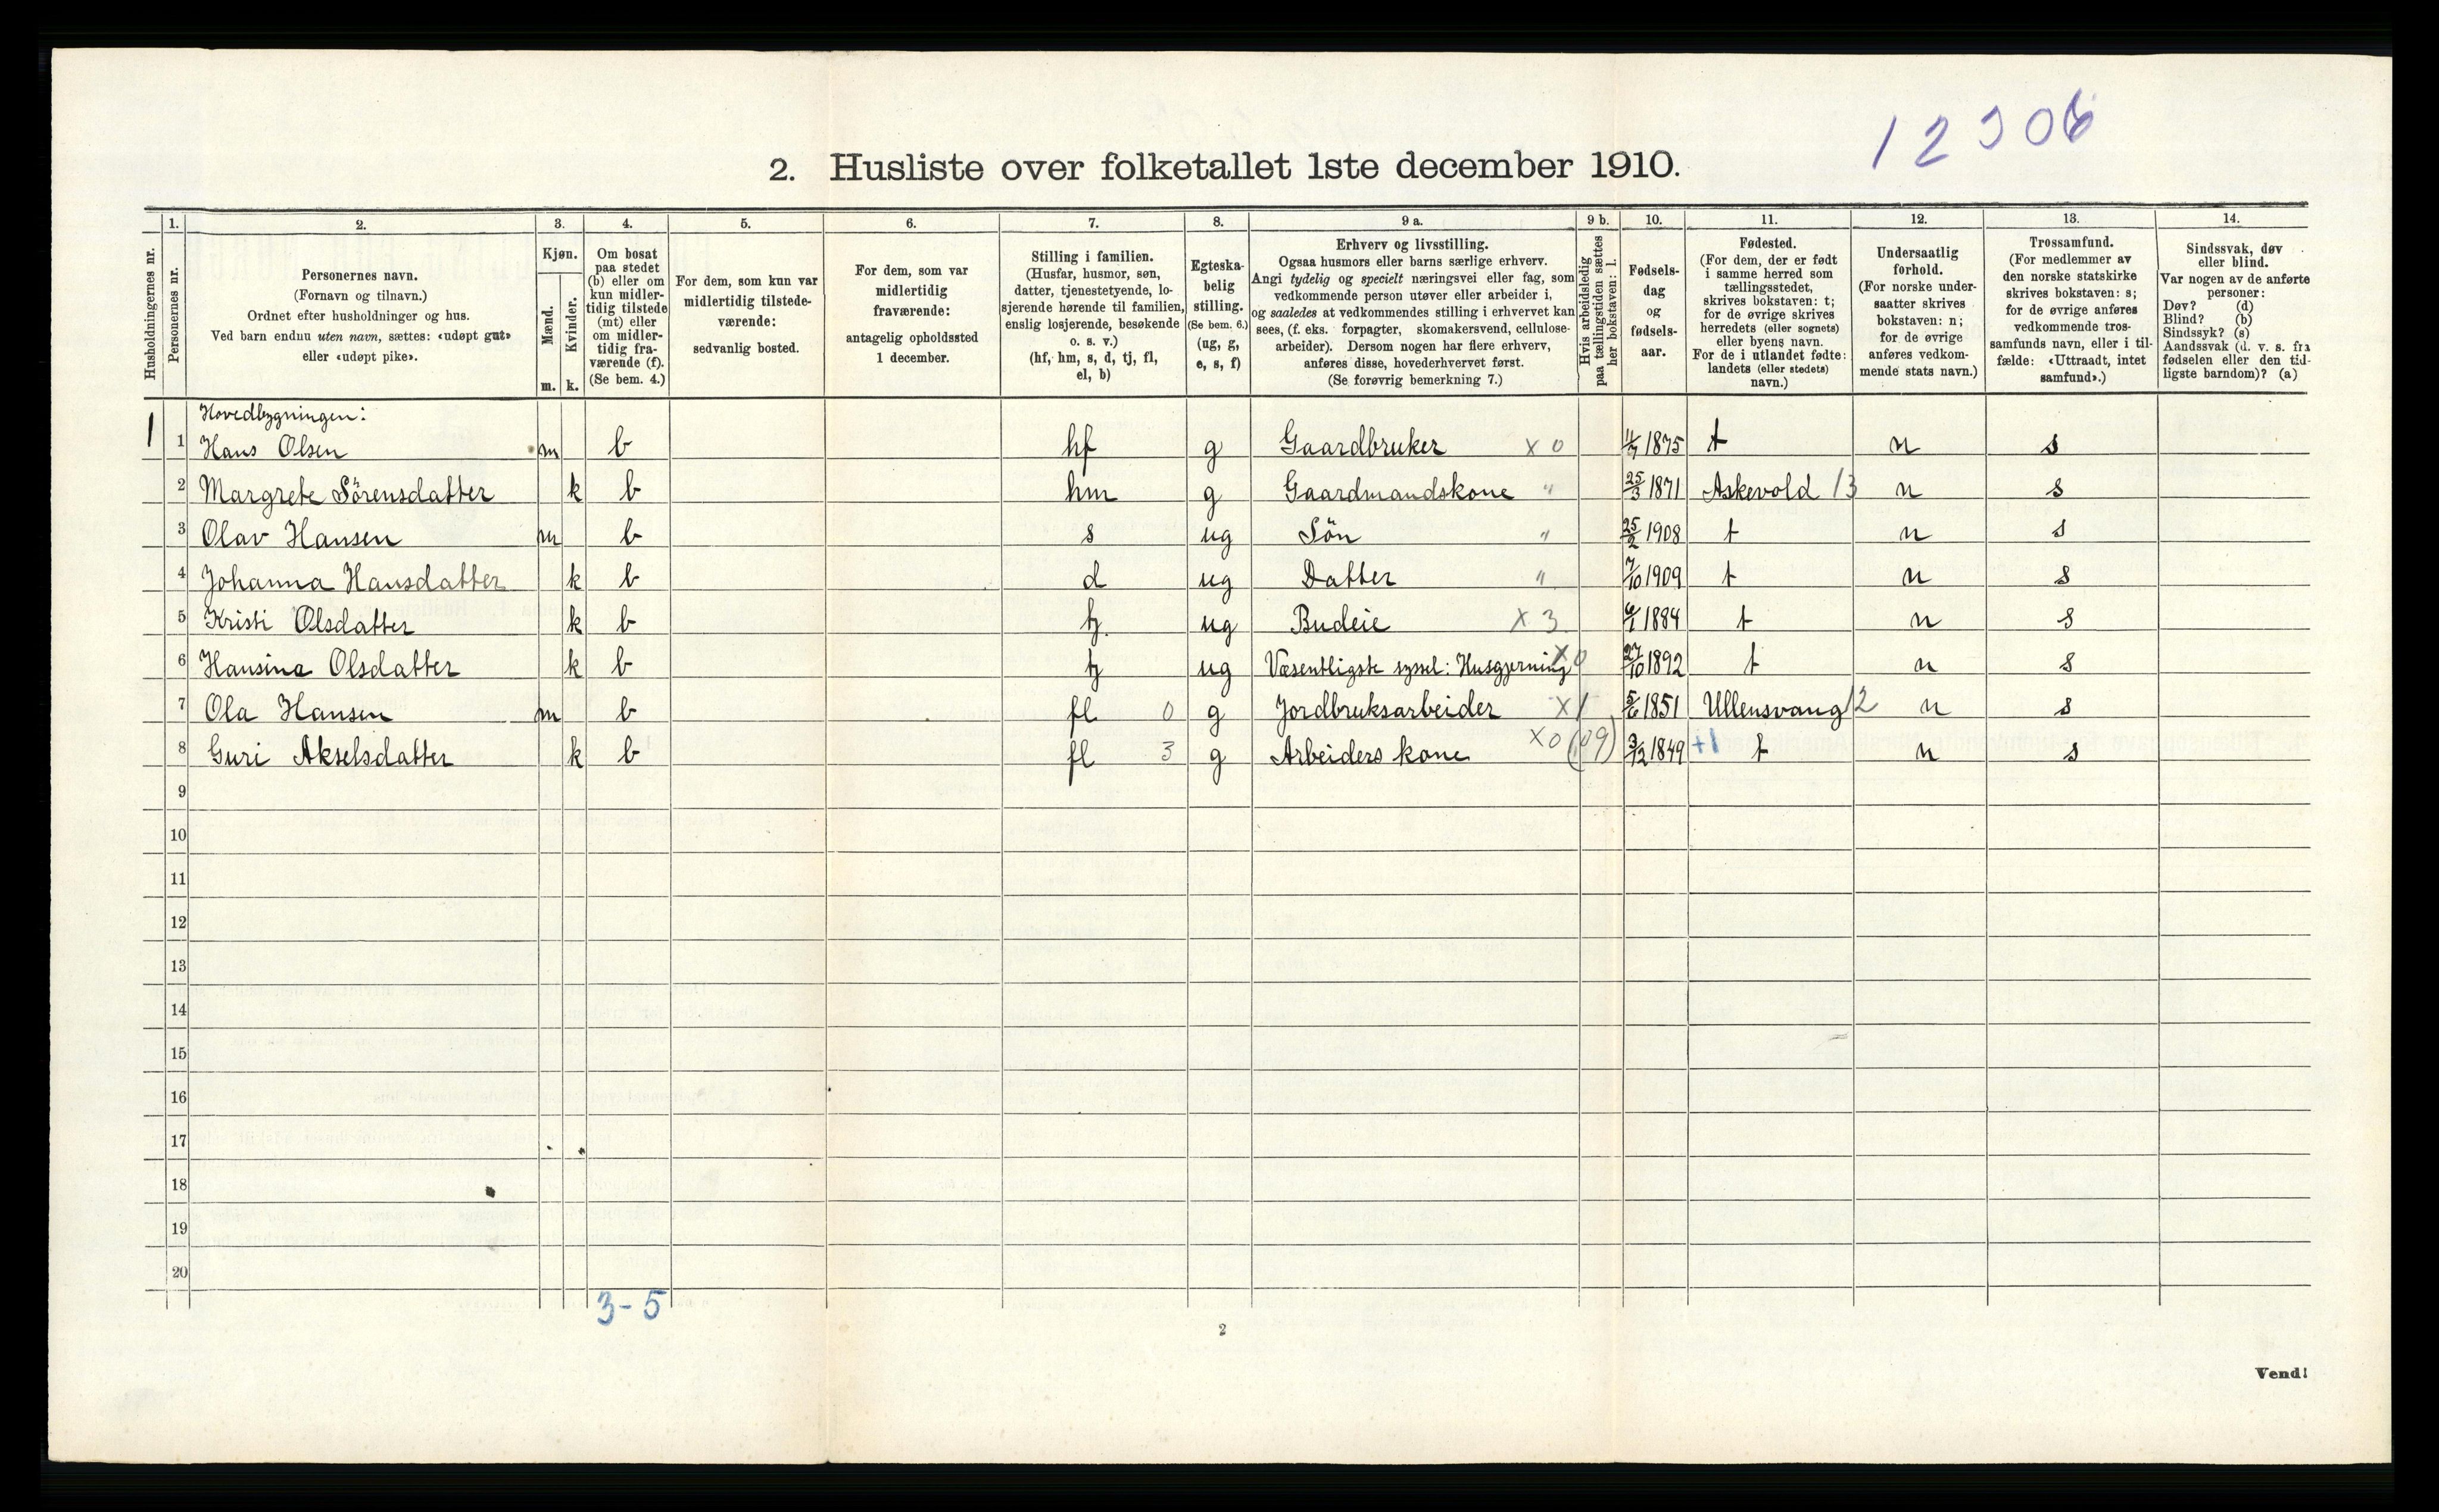 12306
2. Husliste over folketallet 1ste december 1910.
Husholdningernes nr.
1.
Personernes nr.
2.
Personernes navn.
(Fornavn og tilnavn.)
Ordnet efter husholdninger og hus.
Ved barn endnu uten navn, sættes: «udøpt gut»
eller «udøpt pike».
3.
Kjøn.
Mænd.
Kvinder.
m. k.
4.
Om bosat
paa stedet
(b) eller om
kun midler-
tidig tilstede
(mt) eller
om midler-
tidig fra-
værende (f).
(Se bem. 4.)
5.
For dem, som kun var
midlertidig tilstede-
værende:
sedvanlig bosted.
6.
For dem, som var
midlertidig
fraværende:
antagelig opholdssted
1 december.
7.
Stilling i familien.
(Husfar, husmor, søn,
datter, tjenestetyende, lo-
sjerende hørende til familien,
enslig losjerende, besøkende
o. s. v.)
(hf, hm, s, d, tj, fl,
el, b)
8.
Egteska-
belig
stilling.
(Se bem. 6.)
(ug, g,
e, s, f)
9 a.
Erhverv og livsstilling.
Ogsaa husmors eller barns særlige erhverv.
Angi tydelig og specielt næringsvei eller fag, som
vedkommende person utøver eller arbeider i,
og saaledes at vedkommendes stilling i erhvervet kan
sees, (f. eks. forpagter, skomakersvend, cellulose-
arbeider). Dersom nogen har flere erhverv,
anføres disse, hovederhvervet først.
(Se forøvrig bemerkning 7.)
9 b.
Hvis arbeidsledig
paa tællingstiden sættes
her bokstaven: l.
10.
Fødsels-
dag
og
fødsels-
aar.
11.
Fødested.
(For dem, der er født
i samme herred som
tællingsstedet,
skrives bokstaven: t;
for de øvrige skrives
herredets (eller sognets)
eller byens navn.
For de i utlandet fødte:
landets (eller stedets)
navn.)
12.
Undersaatlig
forhold.
(For norske under-
saatter skrives
bokstaven: n;
for de øvrige
anføres vedkom-
mende stats navn.)
13.
Trossamfund.
(For medlemmer av
den norske statskirke
skrives bokstaven: s;
for de øvrige anføres
vedkommende tros-
samfunds navn, eller i til-
fælde: «Uttraadt, intet
samfund».)
14.
Sindssvak, døv
eller blind.
Var nogen av de anførte
personer:
Døv? (d)
Blind? (b)
Sindssyk? (s)
Aandssvak (d. v. s. fra
fødselen eller den tid-
ligste barndom)? (a)
Hovedbygningen:
1 1 Hans Olsen m b hf g Gaardbruker x 0 1875 t n s
2 Margrete Sörensdatter k b hm g Gaardmandskone " 25/3 1871 Askevold 13 n s
3 Olav Hansen m b s ug Sön " 25/2 1908 t n s
4 Johanna Hansdatter k b d ug Datter " 7/10 1909 t n s
5 Kristi Olsdatter k b tj. ug Budeie x 3 1884 t n s
6 Hansina Olsdatter k b tj ug Væsentligste syssel: Husgjerning x0 27/10 1892 t n s
7 Ola Hansen m b fl 0 g Jordbruksarbeider x1 5/6 1851 Ullensvang 12 n s
8 Guri Akselsdatter k b fl 3 g Arbeiders kone x0 (09) 3/12 1849 +1 t n s
9
10
11
12
13
14
15
16
17
18
19
20
3-5
2
Vend!